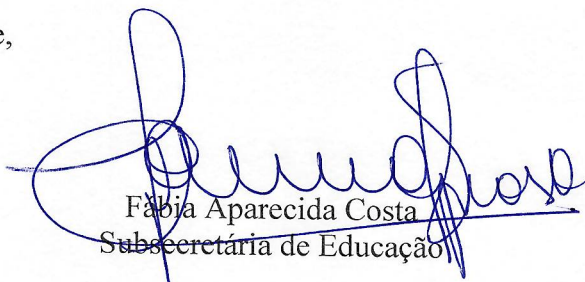 e,
Fábia Aparecida Costa
Subsecretária de Educação